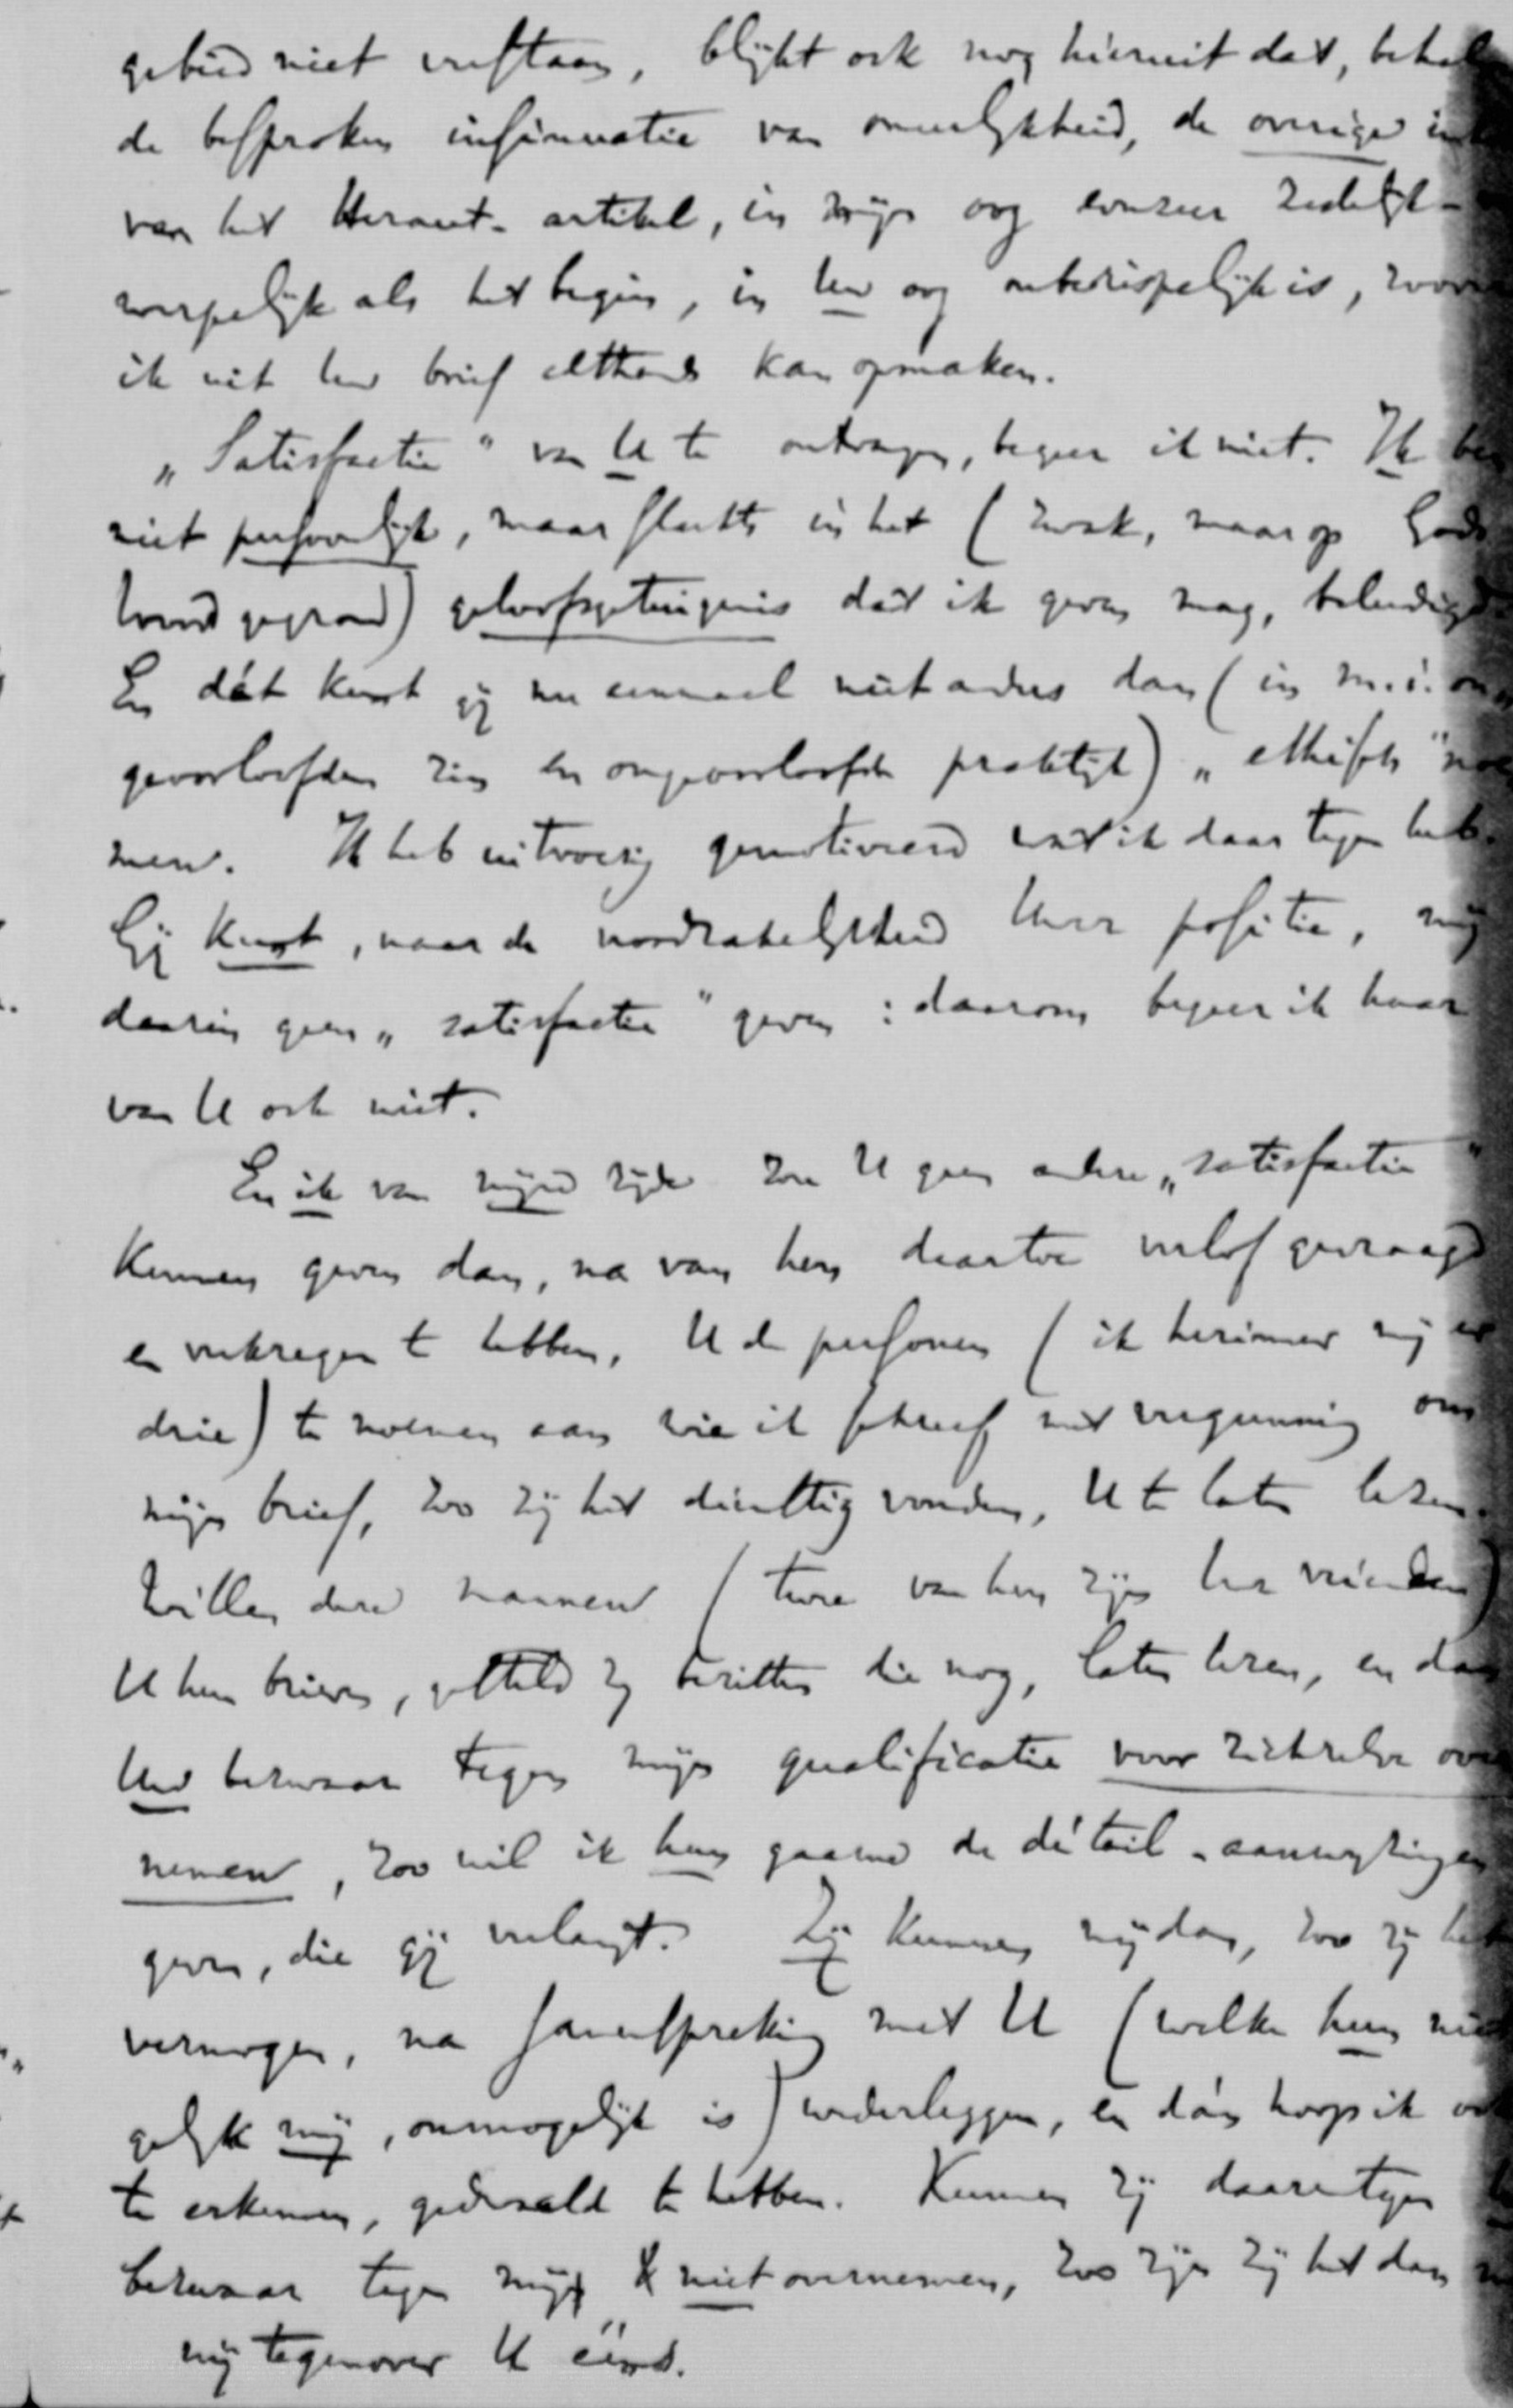 gebied niet verstaan, blijkt ook nog hieruit dat, behal
de besproken insinuatie van oneerlijkheid, de overige in
van het Heraut-artikel, in mijn oog evenzeer zedelijk-
werpelijk als het begin, in Uw oog onberispelijk is, voor
ik uit Uw brief althans kan opmaken.
„Satisfactie" van U te ontvangen, begeer ik niet. Ik ben
niet persoonlijk, maar slechts in het (zwak, maar op Gods
Woord gegrond) geloofsgetuigenis dat ik geven mag, beleedigd.
En dát kunt gij nu eenmaal niet anders dan (in m.i. on
geoorloofden zin en ongeoorloofde praktijk) „ethisch" noe
men. Ik heb uitvoerig gemotiveerd wat ik daar tegen heb.
Gij kunt, naar de noodzakelijkheid Uwer positie, mij
daarin geen „satisfactie" geven: daarom begeer ik haar
van U ook niet.
En ik van mijne zijde zou U geen andere „satisfactie"
kunnen geven dan, na van hen daartoe verlof gevraagd
en verkregen te hebben, U de personen (ik herinner mij er
drie) te noemen aan wie ik schreef met vergunning om
mijn brief, zoo zij het dienstig vonden, U te laten lezen.
Willen deze mannen (twee van hen zijn Uw vrienden)
U hun brieven, gesteld zij bezitten die nog, laten lezen, en dan
Uw bezwaar tegen mijn qualificatie voor zichzelve over
nemen, zoo wil ik hun gaarne de détail-aanwijzingen
geven, die gij verlangt. Zij kunnen mij dan, zoo zij het
vermogen, na samenspreking met U (welke hun niet
gelijk mij, onmogelijk is) wederleggen, en dán hoop ik ook
te erkennen, gedwaald te hebben. Kunnen zij daarentegen
bezwaar tegen mij niet overnemen, zoo zijn zij het dan
mij tegenover U eens.